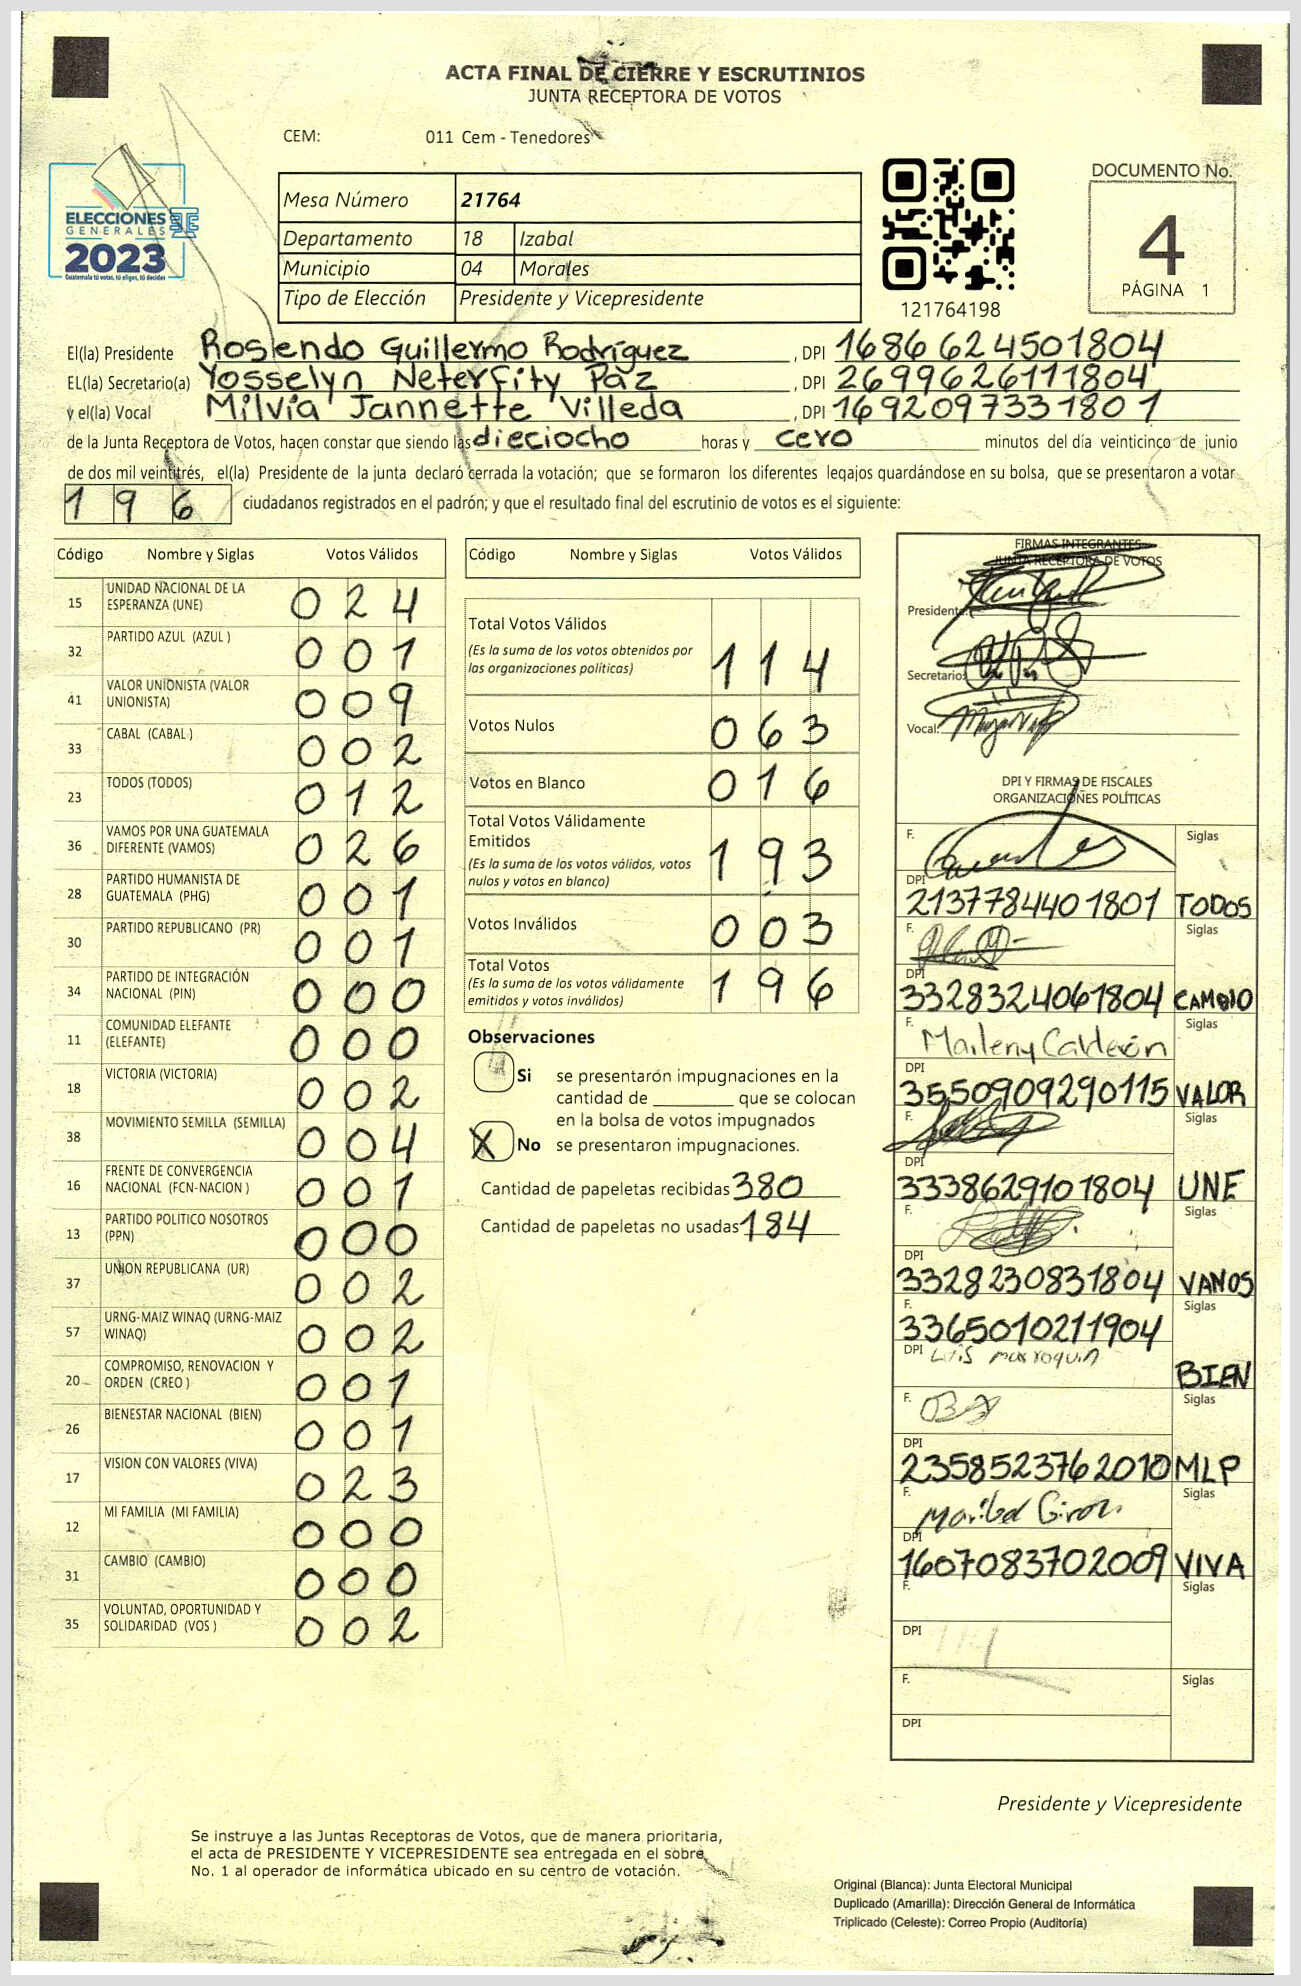 ACTA FINAL DE CIERRE Y ESCRUTINIOS
JUNTA RECEPTORA DE VOTOS
CEM: 011 Cem - Tenedores
ELECCIONES
GENERALES
2023
Guatemala tú votas, tú eliges, tú decides
Mesa Número 21764
Departamento 18 Izabal
Municipio 04 Morales
Tipo de Elección Presidente y Vicepresidente
121764198
DOCUMENTO No.
4
PÁGINA 1
El(la) Presidente Rosendo Guillermo Rodríguez , DPI 1686624501804
EL(la) Secretario(a) Yosselyn Neterfity Paz , DPI 2699626111804
y el(la) Vocal Milvia Jannette Villeda , DPI 1692097331801
de la Junta Receptora de Votos, hacen constar que siendo las dieciocho horas y cero minutos del día veinticinco de junio
de dos mil veintitrés, el(la) Presidente de la junta declaró cerrada la votación; que se formaron los diferentes legajos guardándose en su bolsa, que se presentaron a votar
196 ciudadanos registrados en el padrón; y que el resultado final del escrutinio de votos es el siguiente:
Código Nombre y Siglas Votos Válidos
15 UNIDAD NACIONAL DE LA ESPERANZA (UNE) 024
32 PARTIDO AZUL (AZUL ) 001
41 VALOR UNIONISTA (VALOR UNIONISTA) 009
33 CABAL (CABAL ) 002
23 TODOS (TODOS) 012
36 VAMOS POR UNA GUATEMALA DIFERENTE (VAMOS) 026
28 PARTIDO HUMANISTA DE GUATEMALA (PHG) 001
30 PARTIDO REPUBLICANO (PR) 001
34 PARTIDO DE INTEGRACIÓN NACIONAL (PIN) 000
11 COMUNIDAD ELEFANTE (ELEFANTE) 000
18 VICTORIA (VICTORIA) 002
38 MOVIMIENTO SEMILLA (SEMILLA) 004
16 FRENTE DE CONVERGENCIA NACIONAL (FCN-NACION ) 001
13 PARTIDO POLITICO NOSOTROS (PPN) 000
37 UNION REPUBLICANA (UR) 002
57 URNG-MAIZ WINAQ (URNG-MAIZ WINAQ) 002
20 COMPROMISO, RENOVACION Y ORDEN (CREO ) 001
26 BIENESTAR NACIONAL (BIEN) 001
17 VISION CON VALORES (VIVA) 023
12 MI FAMILIA (MI FAMILIA) 000
31 CAMBIO (CAMBIO) 000
35 VOLUNTAD, OPORTUNIDAD Y SOLIDARIDAD (VOS ) 002
Código Nombre y Siglas Votos Válidos
Total Votos Válidos
(Es la suma de los votos obtenidos por las organizaciones políticas) 114
Votos Nulos 063
Votos en Blanco 016
Total Votos Válidamente Emitidos
(Es la suma de los votos válidos, votos nulos y votos en blanco) 193
Votos Inválidos 003
Total Votos
(Es la suma de los votos válidamente emitidos y votos inválidos) 196
Observaciones
Si se presentarón impugnaciones en la
cantidad de ________ que se colocan
en la bolsa de votos impugnados
X No se presentaron impugnaciones.
Cantidad de papeletas recibidas 380
Cantidad de papeletas no usadas 184
FIRMAS INTEGRANTES
JUNTA RECEPTORA DE VOTOS
Presidente:
Secretario:
Vocal:
DPI Y FIRMAS DE FISCALES
ORGANIZACIONES POLÍTICAS
F. Siglas
DPI 2137784401801 TODOS
F. Siglas
DPI 3328324061804 CAMBIO
F. Marleny Calderón Siglas
DPI 3550909290115 VALOR
F. Siglas
DPI 3338629101804 UNE
F. Siglas
DPI 3328230831804 VAMOS
F. 3365010211904 Siglas
DPI Luis Marroquin BIEN
F. Siglas
DPI 2358523762010 MLP
F. Maribel Giron Siglas
DPI 1607083702009 VIVA
F. Siglas
DPI
F. Siglas
DPI
Presidente y Vicepresidente
Se instruye a las Juntas Receptoras de Votos, que de manera prioritaria,
el acta de PRESIDENTE Y VICEPRESIDENTE sea entregada en el sobre
No. 1 al operador de informática ubicado en su centro de votación.
Original (Blanca): Junta Electoral Municipal
Duplicado (Amarilla): Dirección General de Informática
Triplicado (Celeste): Correo Propio (Auditoría)